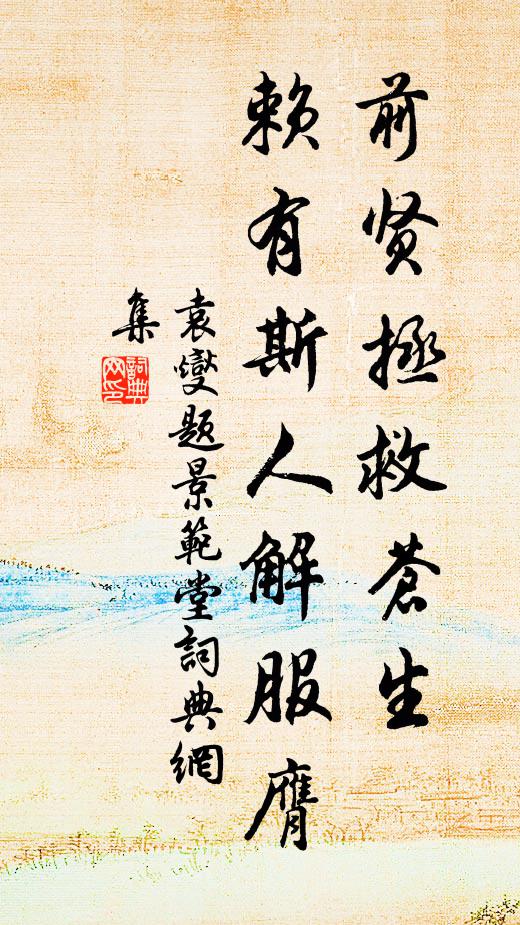 前贤拯救苍生
赖有斯人解服膺
袁燮题景範堂词典網
集
詞典網印